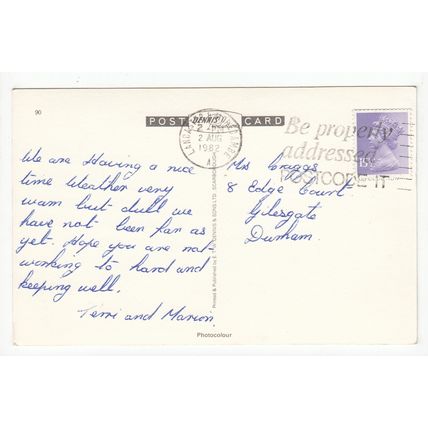 90
POST DENNIS CARD
LANCASTER & MORECAMBE
2 AUG
1982
A
Be properly
addressed
POSTCODE IT
We are Having a nice
time Weather very
warm but dull we
have not been far as
yet. Hope you are not
working to hard and
keeping well.
Terri and Marion.
Mrs Craggs
8 Edge Court
Gilesgate
Durham.
Printed & Published by E. T. W. DENNIS & SONS LTD. SCARBOROUGH
Photocolour